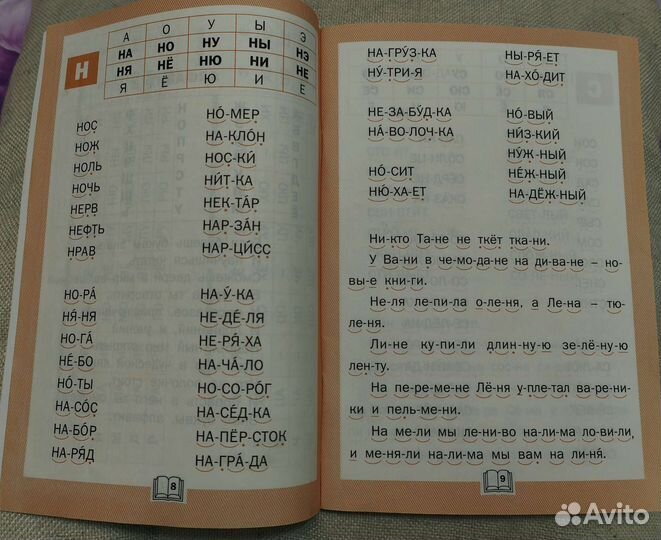 А О У Ы Э
НА НО НУ НЫ НЭ
Н
НЯ НЁ НЮ НИ НЕ
Я Ё Ю И Е
НОС
НОЖ
НОЛЬ
НОЧЬ
НЕРВ
НЕФТЬ
НРАВ
НО́-МЕР
НА-КЛО́Н
НОС-КИ́
НИ́Т-КА
НЕК-ТА́Р
НАР-ЗА́Н
НАР-ЦИ́СС
НО-РА́
НЯ́-НЯ
НО-ГА́
НЕ́-БО
НО́-ТЫ
НА-СО́С
НА-БО́Р
НА-РЯ́Д
НА-У́-КА
НЕ-ДЕ́-ЛЯ
НЕ-РЯ́-ХА
НА-ЧА́-ЛО
НО-СО-РО́Г
НА-СЕ́Д-КА
НА-ПЁР-СТОК
НА-ГРА́-ДА
8
НА-ГРУ́З-КА
НУ́-ТРИ-Я
НЫ-РЯ́-ЕТ
НА-ХО́-ДИТ
НЕ-ЗА-БУ́Д-КА
НА́-ВО-ЛОЧ-КА
НО́-СИТ
НЮ́-ХА-ЕТ
НО́-ВЫЙ
НИ́З-КИЙ
НУ́Ж-НЫЙ
НЕ́Ж-НЫЙ
НА-ДЁЖ-НЫЙ
Ни-кто Та-не не ткёт тка-ни.
У Ва-ни в че-мо-да-не на ди-ва-не – но-
вы-е кни-ги.
Не-ля ле-пи-ла о-ле-ня, а Ле-на – тю-
ле-ня.
Ли-не ку-пи-ли длин-ну-ю зе-лё-ну-ю
лен-ту.
На пе-ре-ме-не Лё-ня у-пле-тал ва-ре-ни-
ки и пель-ме-ни.
На ме-ли мы ле-ни-во на-ли-ма ло-ви-ли,
и ме-ня-ли на-ли-ма мы вам на ли-ня́.
9
Avito